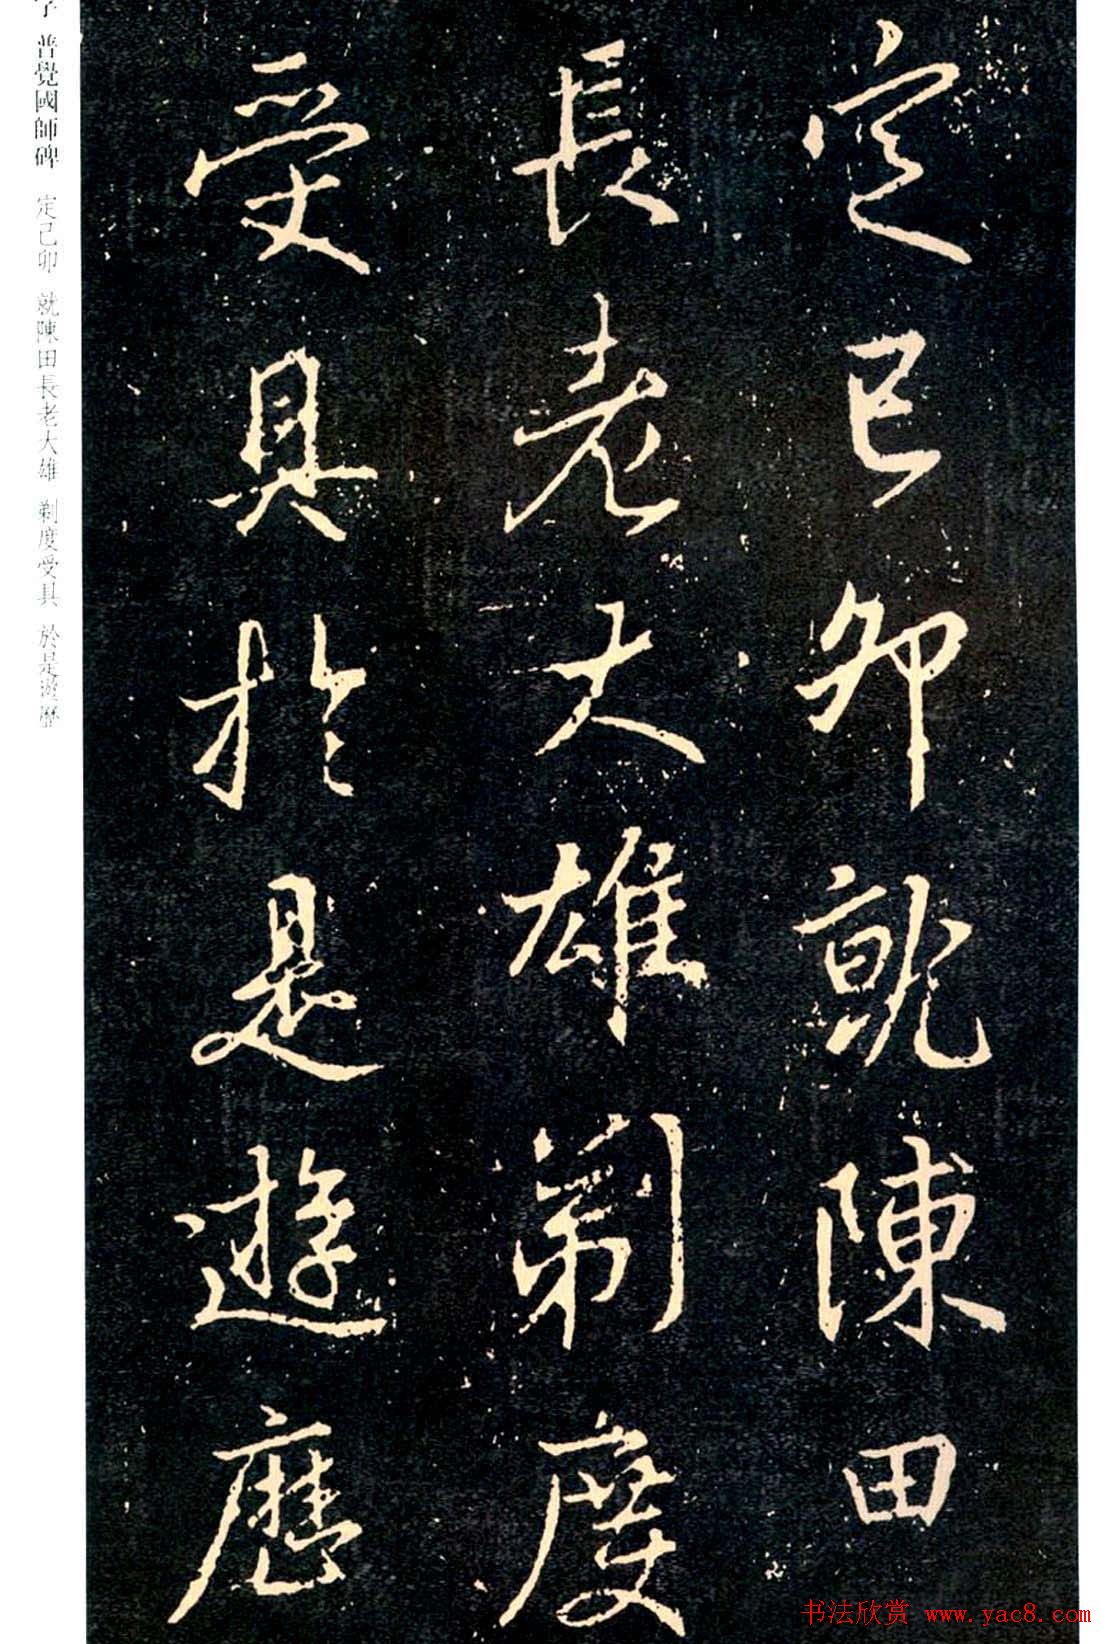 定已卯就陳田
長老大雄剃度
受具於是遊歷
普覺國師碑 定己卯 就陳田長老大雄 剃度受具 於是遊歷
书法欣赏 www.yac8.com